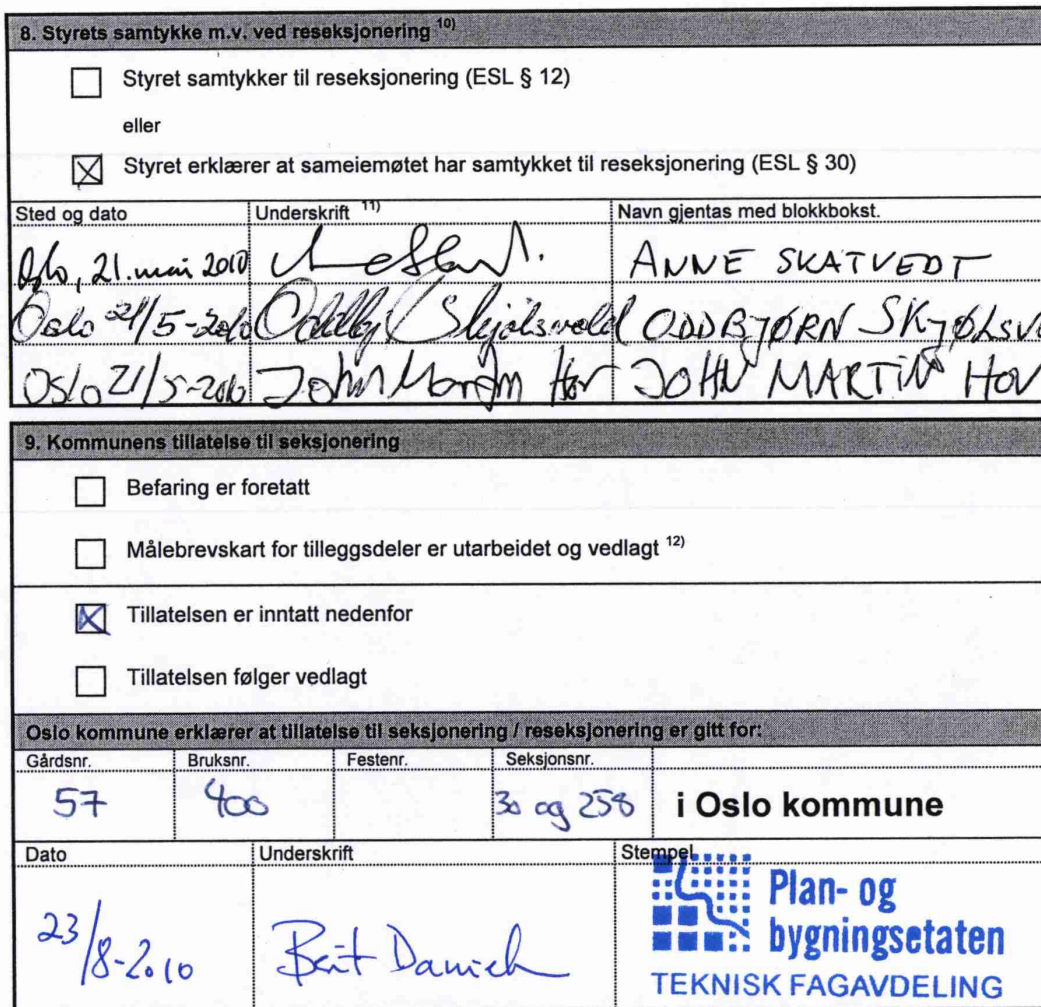 8. Styrets samtykke m.v. ved reseksjonering 10)
Styret samtykker til reseksjonering (ESL § 12)
eller
Styret erklærer at sameiemøtet har samtykket til reseksjonering (ESL § 30)
Sted og dato Underskrift 11) Navn gjentas med blokkbokst.
Oslo, 21. mai 2010 ANNE SKATVEDT
Oslo 21/5-2010 Oddbj Skjølsvold ODDBJØRN SKJØLSVO
Oslo 21/5-2010 John Martin Hov JOHN MARTIN HOV
9. Kommunens tillatelse til seksjonering
Befaring er foretatt
Målebrevskart for tilleggsdeler er utarbeidet og vedlagt 12)
Tillatelsen er inntatt nedenfor
Tillatelsen følger vedlagt
Oslo kommune erklærer at tillatelse til seksjonering / reseksjonering er gitt for:
Gårdsnr. Bruksnr. Festenr. Seksjonsnr.
57 400 30 og 258 i Oslo kommune
Dato Underskrift Stempel
23/8-2010 Berit
Plan- og
bygningsetaten
TEKNISK FAGAVDELING